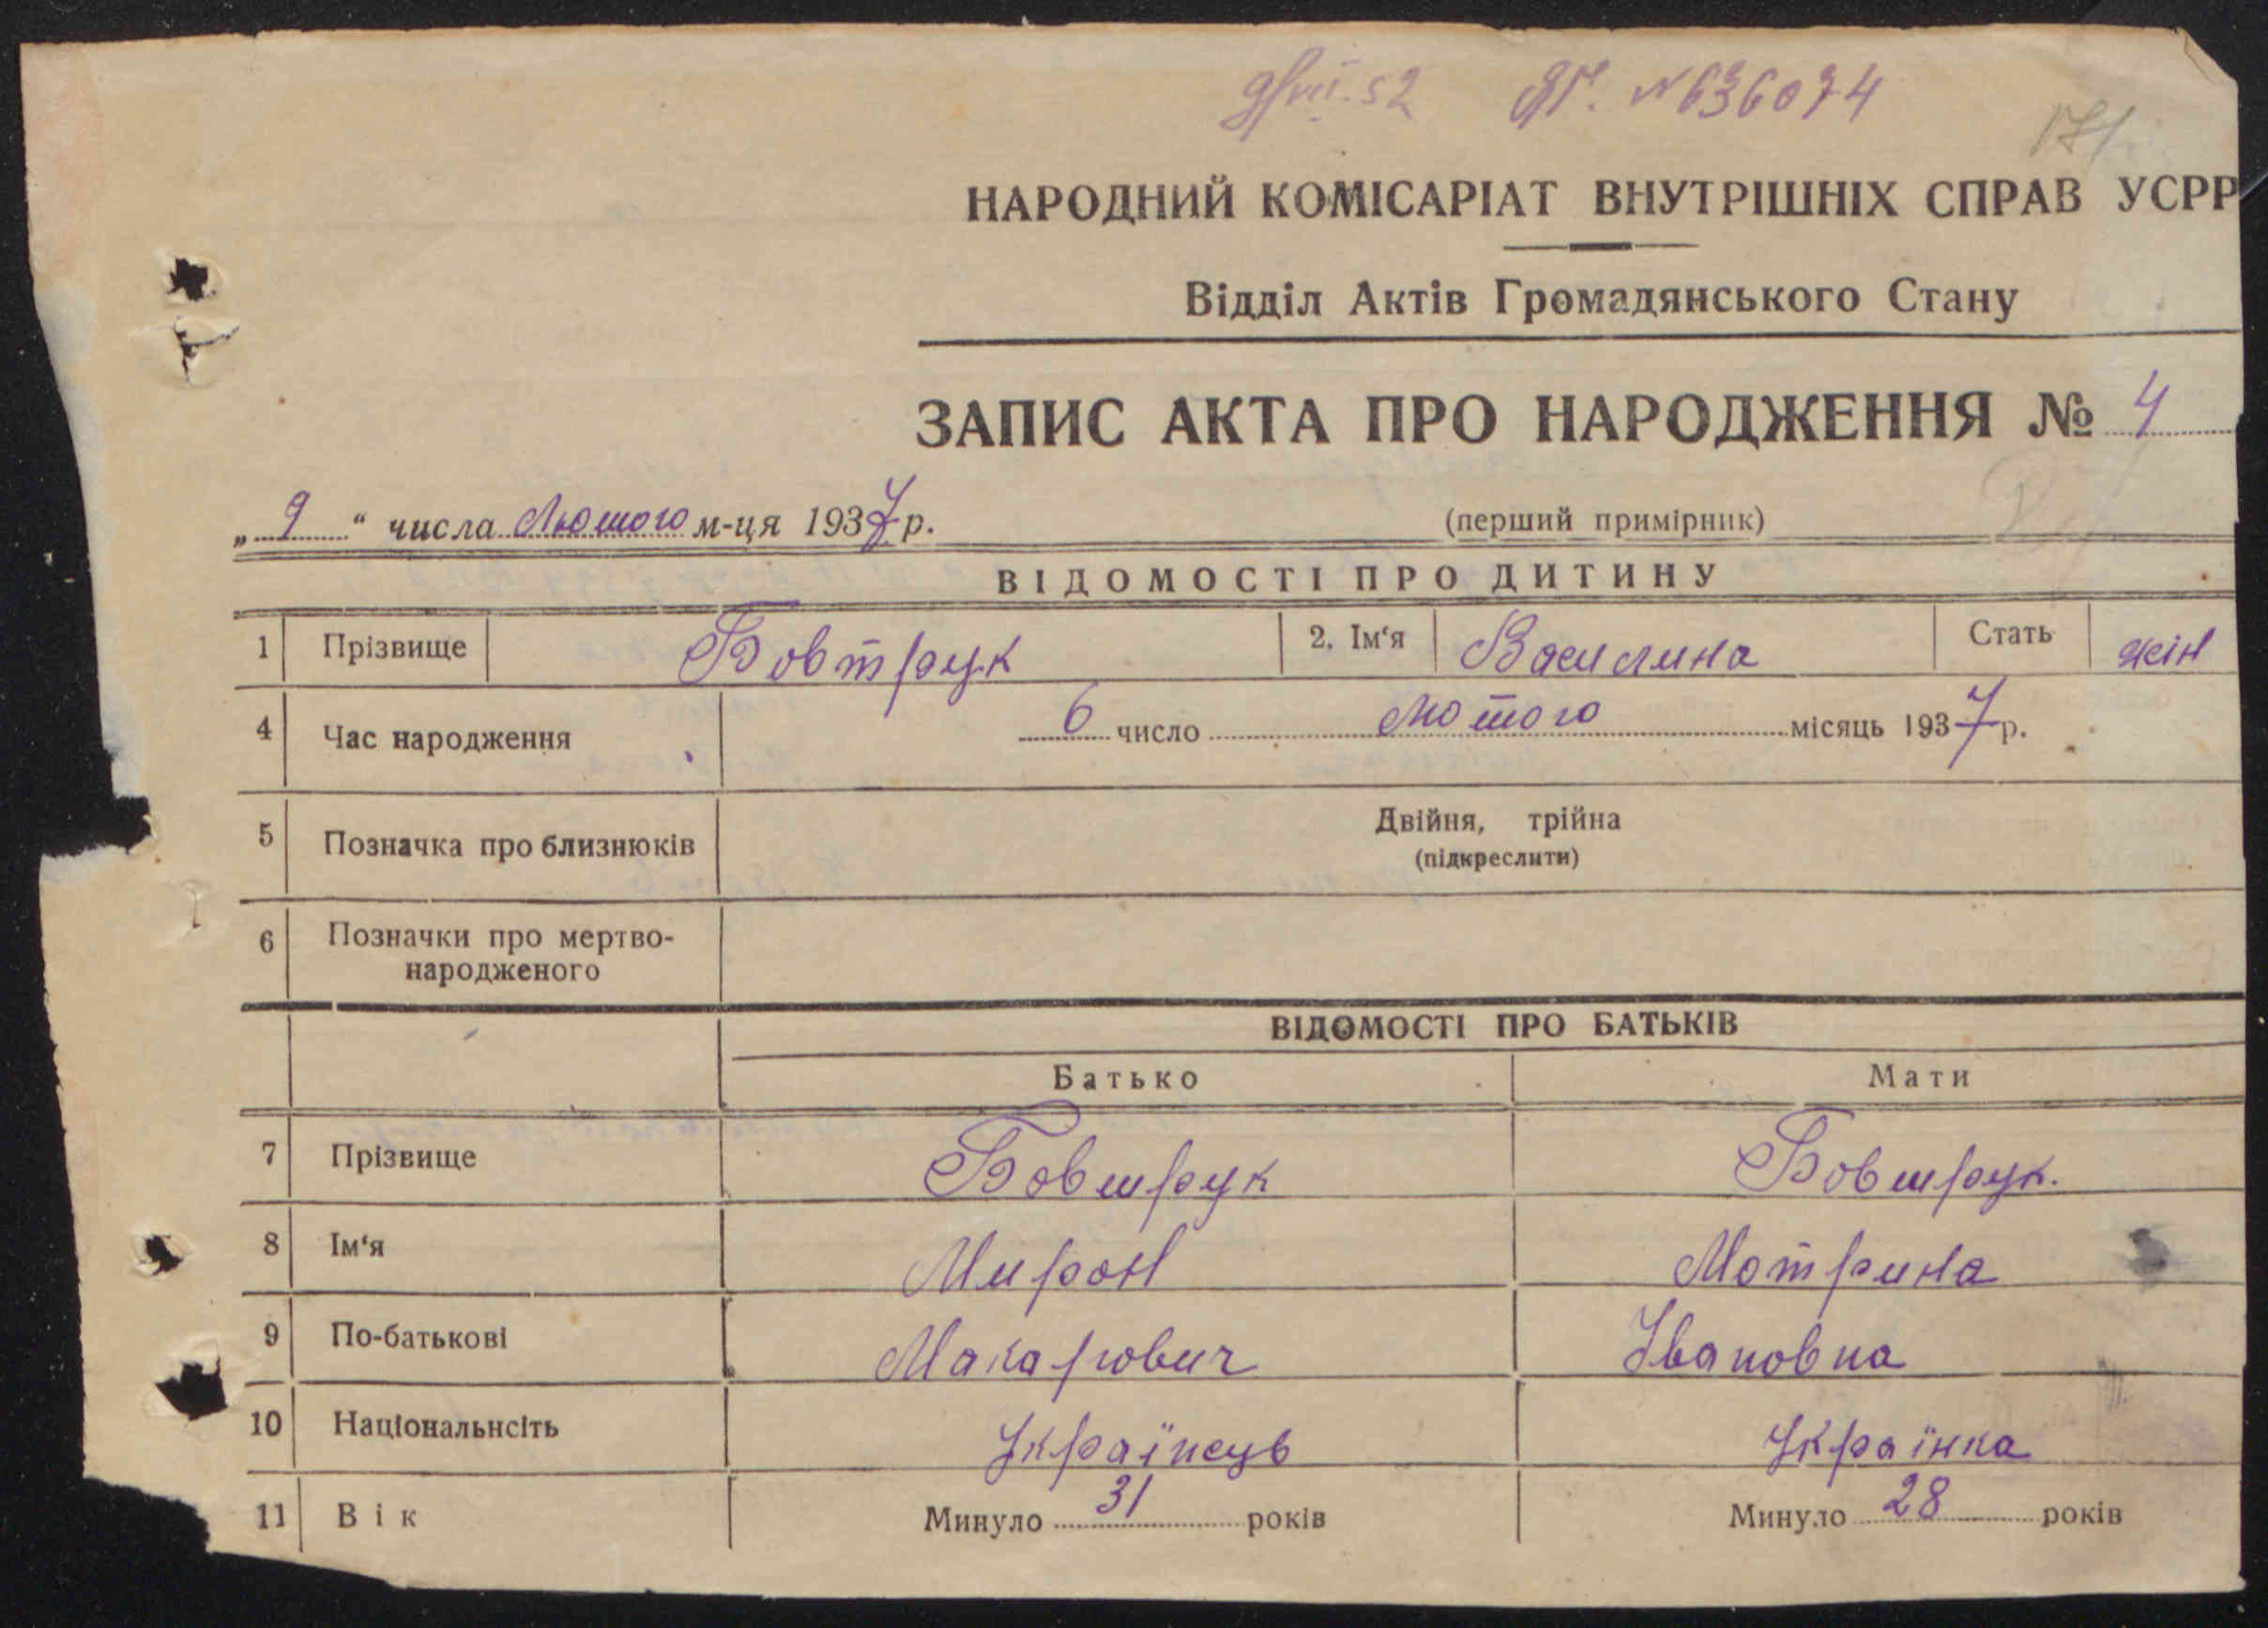 9/VII-52 ЯГ. №636074
171
НАРОДНИЙ КОМІСАРІАТ ВНУТРІШНІХ СПРАВ УСРР
Відділ Актів Громадянського Стану
ЗАПИС АКТА ПРО НАРОДЖЕННЯ № 4
„ 9 “ числа Лютого м-ця 1937 р.
(перший примірник)
ВІДОМОСТІ ПРО ДИТИНУ
1 Прізвище Бовтрук 2. Ім‘я Василина Стать жін
4 Час народження 6 число лютого місяць 1937 р.
5 Позначка про близнюків Двійня, трійна
(підкреслити)
6 Позначки про мертво-
народженого
ВІДОМОСТІ ПРО БАТЬКІВ
Батько Мати
7 Прізвище Бовтрук Бовтрук.
8 Ім‘я Мирон Мотрина
9 По-батькові Макарович Івановна
10 Національнсіть Українець Українка
11 Вік Минуло 31 років Минуло 28 років